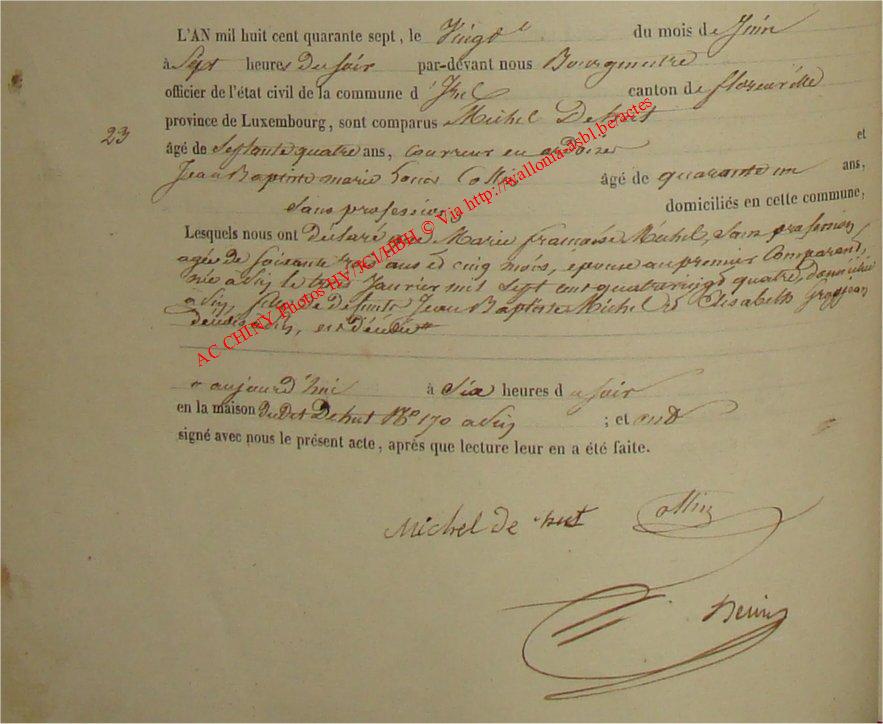 L'AN mil huit cent quarante sept, le Vingt du mois de Juin
à Sept heures du soir par-devant nous Bourgmestre
officier de l'état civil de la commune d' canton de florenville
23
province de Luxembourg, sont comparus Michel Dehut
âgé de Septante quatre ans, Couvreur en ardoises et
Jean Baptiste marie âgé de quarante un ans,
Sans profession domiciliés en cette commune,
Lesquels nous ont déclaré que Marie françoise Michel, Sans profession
agée de soixante trois ans et cinq mois, epouse au premier Comparant,
née a le trois Janvier mil Sept cent quatrevingt quatre, domiciliée
a fille de defunts Jean Baptiste Michel et Elisabeth Grosjean
décédés a est décédée
aujourd'hui à Six heures d u soir
en la maison dudit Dehut No 170 a ; et ont
signé avec nous le présent acte, après que lecture leur en a été faite.
Michel de hut
AC CHINY Photos HV/JCl/HBH © Via http://wallonia-asbl.be/actes